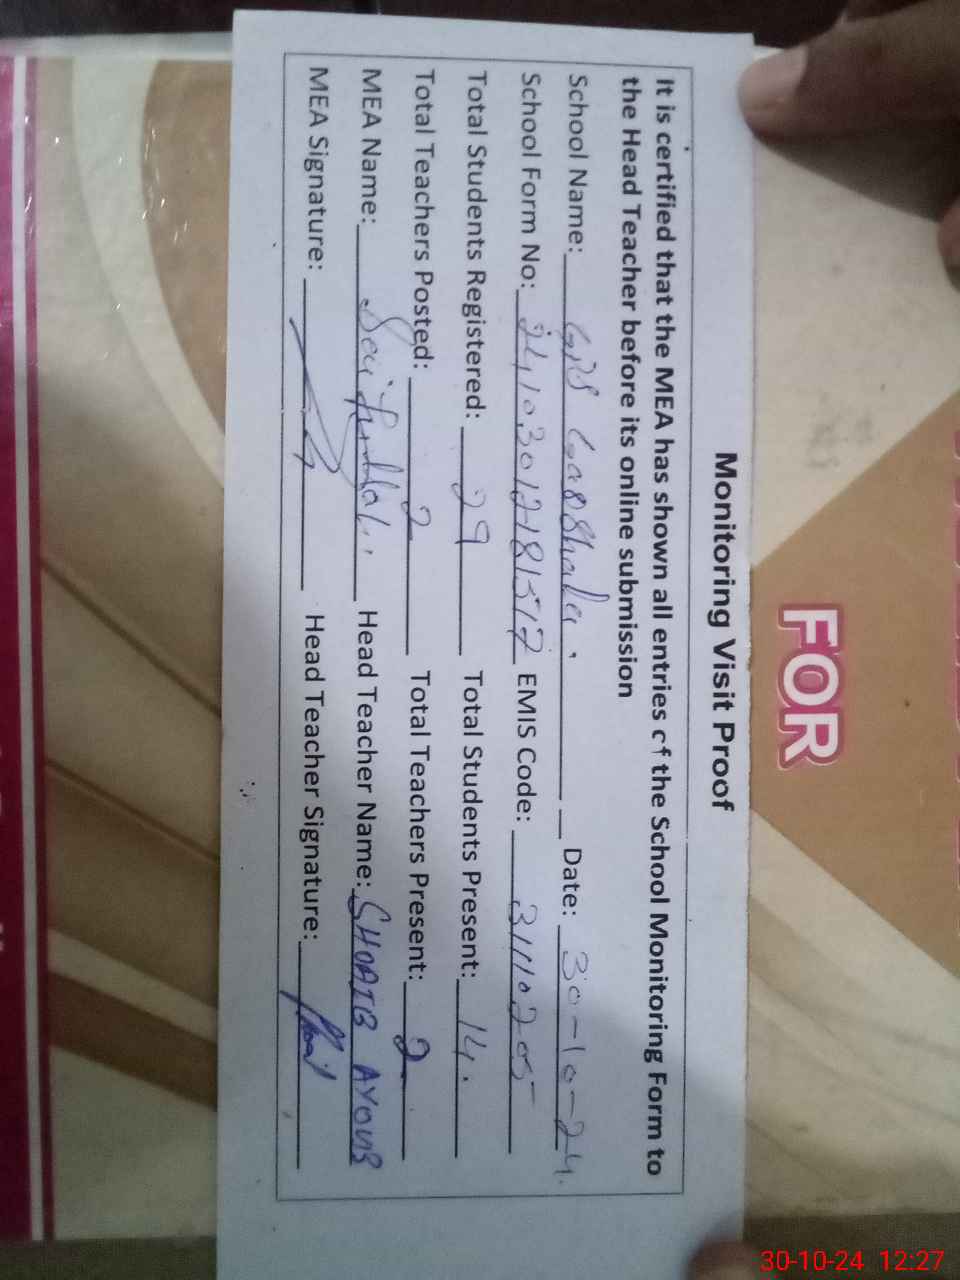 FOR
Monitoring Visit Proof
It is certified that the MEA has shown all entries of the School Monitoring Form to
the Head Teacher before its online submission
School Name: Date: 30-10-24.
School Form No: EMIS Code: 31110205
Total Students Registered: 29 Total Students Present: 14.
Total Teachers Posted: 2 Total Teachers Present: 2
MEA Name: Head Teacher Name: SHOAIB AYOUB
MEA Signature: Head Teacher Signature:
30-10-24 12:27